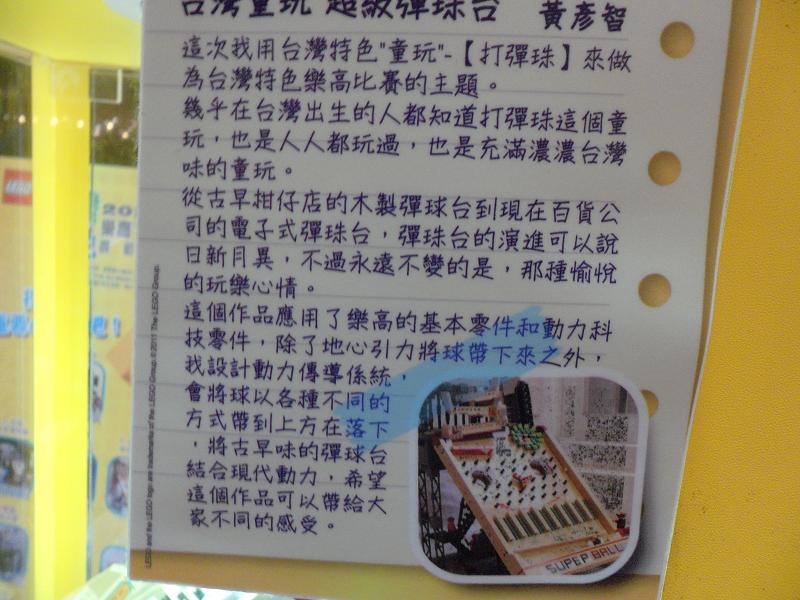 台灣童玩 超級彈珠台 黃彥智
這次我用台灣特色"童玩"-【打彈珠】來做
為台灣特色樂高比賽的主題。
幾乎在台灣出生的人都知道打彈珠這個童
玩，也是人人都玩過，也是充滿濃濃台灣
味的童玩。
從古早柑仔店的木製彈球台到現在百貨公
司的電子式彈珠台，彈珠台的演進可以說
日新月異，不過永遠不變的是，那種愉悅
的玩樂心情。
這個作品應用了樂高的基本零件和動力科
技零件，除了地心引力將球帶下來之外，
我設計動力傳導係統，
會將球以各種不同的
方式帶到上方在落下
，將古早味的彈球台
結合現代動力，希望
這個作品可以帶給大
家不同的感受。
SUPER BALL
LEGO and the LEGO logo are trademarks of the LEGO Group. © 2011 The LEGO Group.
LEGO